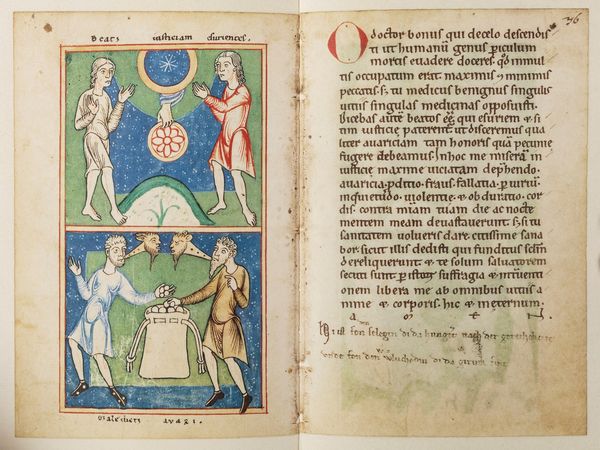 Beati iusticiam esurientes.
Maledicti avari.
36
O doctor bonus qui decelo descendis
ti ut humanū genus ꝑiculum
mortis euadere doceres. qd̄ inmul
tis occupatum erat maximis & minimis
peccatis. s; tu medicus benignus singulis
uitiis singulas medicinas opposuisti.
Dicebas autē beatos eē. qui esuriem & si
tim iusticię paterent̄. ut disceremus qua
liter auariciam tam honoris quā pecunię
fugere debeamus. Inhoc me miserā in
iusticię maxime uiciatam dep̄hendo.
auaricia. ꝑditio. fraus. fallatia. ꝑiuriū.
inquietudo. uiolentię. & ob duratio cor
dis. contra miam tuam die ac nocte
mentem meam deuastauerunt. s; si tu
sanitatem uolueris dare. citissime sana
bor. sicut illis dedisti qui funditus sc̄lm
dereliquerunt. & te solum saluatorem
secuti sunt. ꝑ istoꝝ suffragia & int̄uenti
onem libera me ab omnibus uitiis a
nime & corporis. hic & ineternum.
a m e N